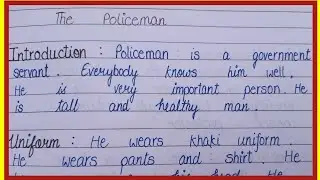 The Policeman
Introduction : Policeman is a government
servant. Everybody knows him well.
He is very important person. He
is tall and healthy man.
Uniform : He wears khaki uniform.
He wears pants and shirt. He